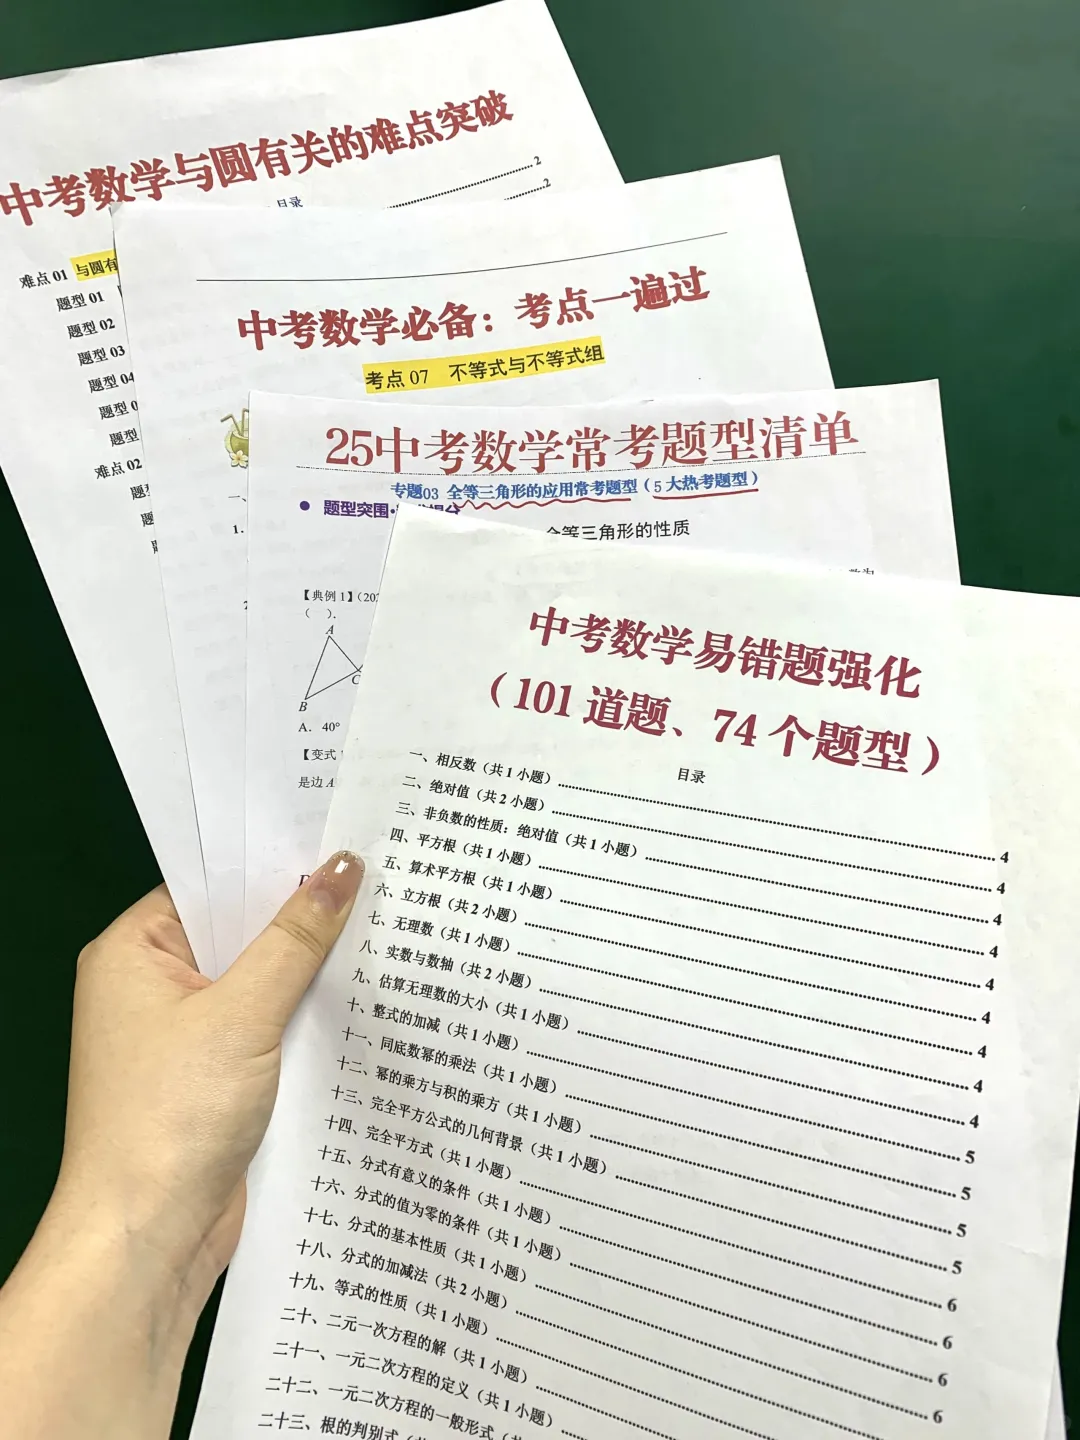 中考数学与圆有关的难点突破
目录
2
2
难点 01 与圆有
题型 01
题型 02
题型 03
题型 04
题型 0
题型
难点 02
中考数学必备：考点一遍过
考点 07 不等式与不等式组
一、
1.
25中考数学常考题型清单
专题03 全等三角形的应用常考题型（5 大热考题型）
题型突围·
全等三角形的性质
【典例 1】(202
（ ）.
A
B
C
A. 40°
【变式
是边 A
中考数学易错题强化
（101 道题、74 个题型）
目录
一、相反数（共 1 小题） 4
二、绝对值（共 2 小题） 4
三、非负数的性质：绝对值（共 1 小题） 4
四、平方根（共 1 小题） 4
五、算术平方根（共 1 小题） 4
六、立方根（共 2 小题） 4
七、无理数（共 1 小题） 4
八、实数与数轴（共 2 小题） 4
九、估算无理数的大小（共 1 小题） 4
十、整式的加减（共 1 小题） 5
十一、同底数幂的乘法（共 1 小题） 5
十二、幂的乘方与积的乘方（共 1 小题） 5
十三、完全平方公式的几何背景（共 1 小题） 5
十四、完全平方式（共 1 小题） 6
十五、分式有意义的条件（共 1 小题） 6
十六、分式的值为零的条件（共 1 小题） 6
十七、分式的基本性质（共 1 小题） 6
十八、分式的加减法（共 2 小题）
十九、等式的性质（共 1 小题）
二十、二元一次方程的解（共 1 小题）
二十一、一元二次方程的定义（共 1 小题）
二十二、一元二次方程的一般形式（共
二十三、根的判别式（共